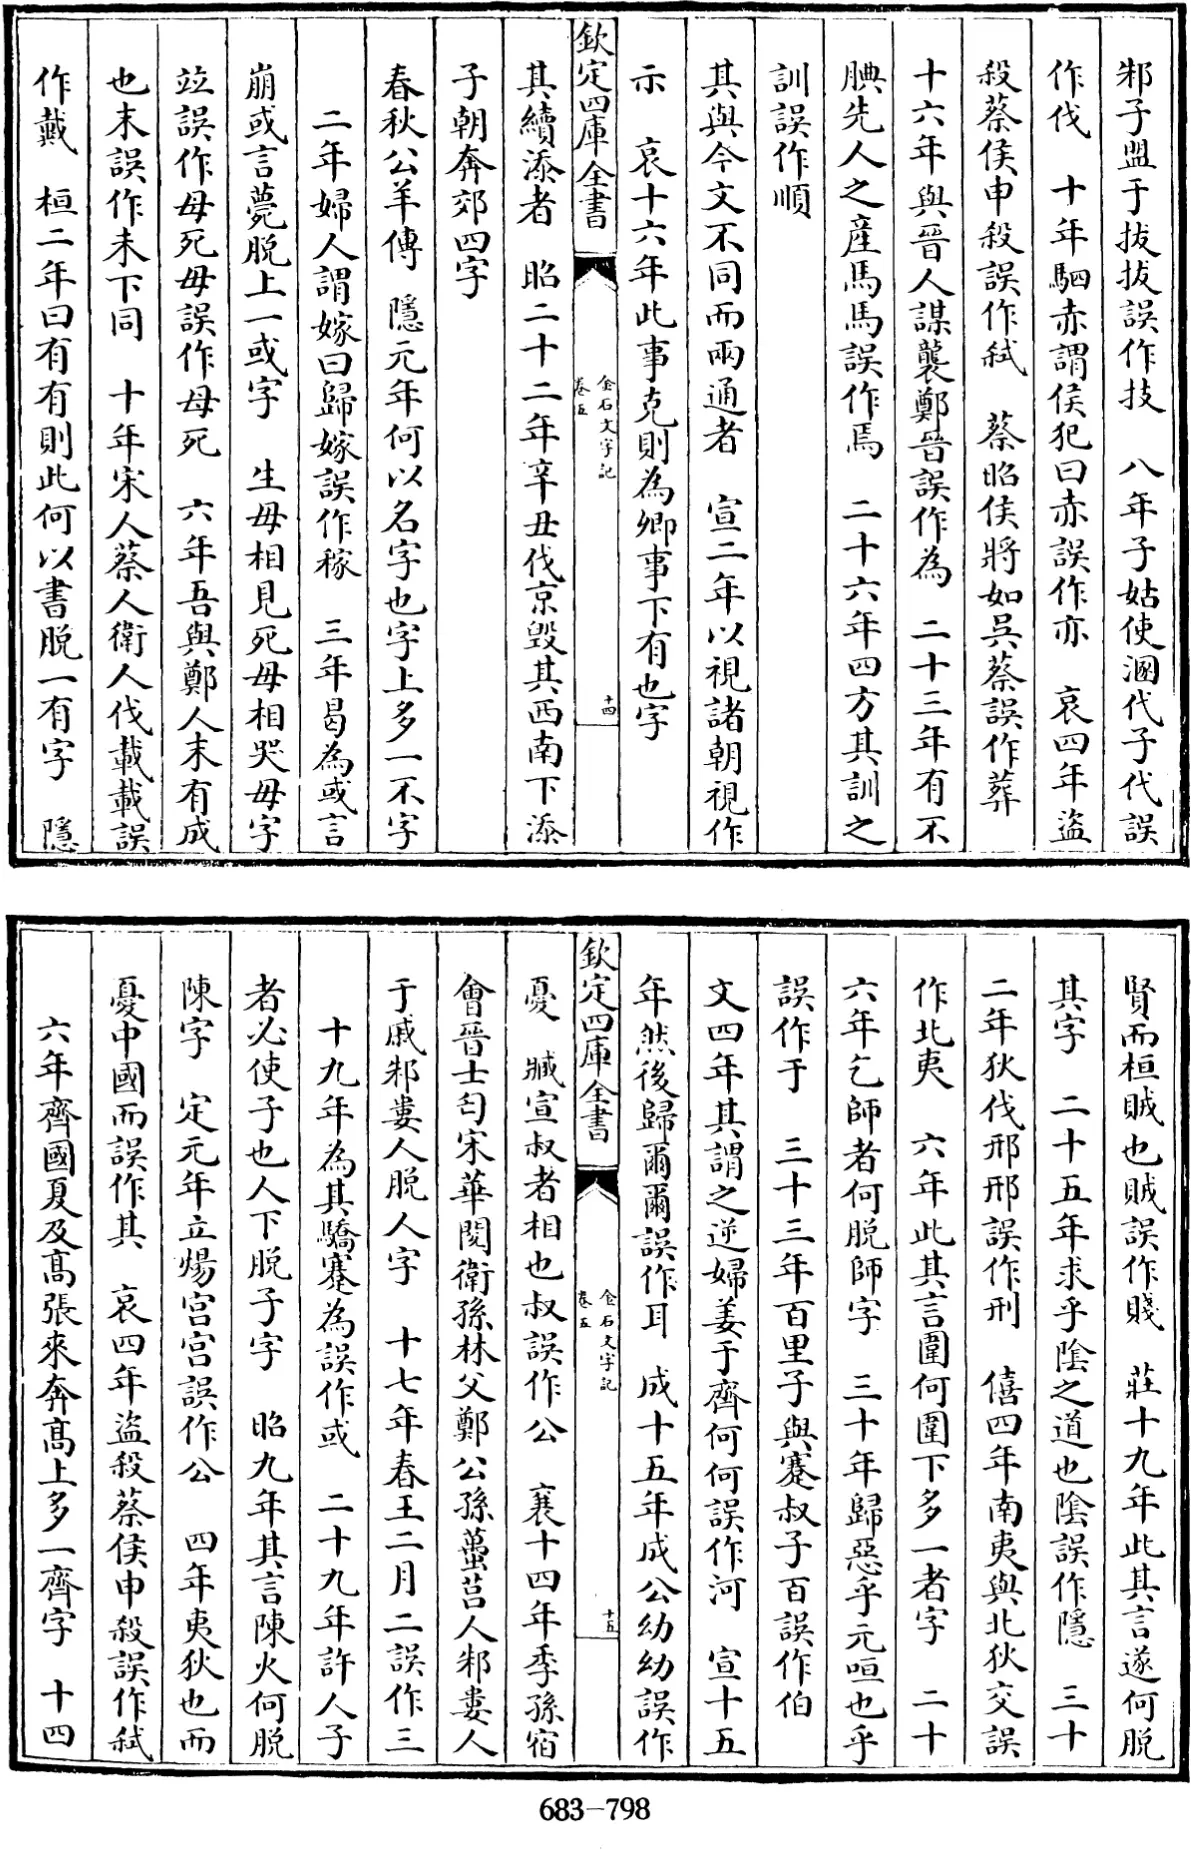 邾子盟于拔拔誤作技　八年子姑使溷代子代誤
作伐　十年駟赤謂侯犯曰赤誤作亦　哀四年盜
殺蔡侯申殺誤作弑　蔡昭侯將如吳蔡誤作葬
十六年與晉人謀襲鄭晉誤作為　二十三年有不
腆先人之產馬馬誤作焉　二十六年四方其訓之
訓誤作順
其與今文不同而兩通者　宣二年以視諸朝視作
示　哀十六年此事克則為卿事下有也字
欽定四庫全書
金石文字記
卷五
十四
其續添者　昭二十二年辛丑伐京毀其西南下添
子朝奔郊四字
春秋公羊傳　隱元年何以名字也字上多一不字
二年婦人謂嫁曰歸嫁誤作稼　三年曷為或言
崩或言薨脱上一或字　生毋相見死毋相哭毋字
竝誤作母死毋誤作母死　六年吾與鄭人末有成
也末誤作未下同　十年宋人蔡人衛人伐載載誤
作戴　桓二年曰有有則此何以書脱一有字　隱
賢而桓賊也賊誤作賤　莊十九年此其言遂何脱
其字　二十五年求乎陰之道也陰誤作隱　三十
二年狄伐邢邢誤作刑　僖四年南夷與北狄交誤
作北夷　六年此其言圍何圍下多一者字　二十
六年乞師者何脱師字　三十年歸惡乎元咺也乎
誤作于　三十三年百里子與蹇叔子百誤作伯
文四年其謂之逆婦姜于齊何何誤作河　宣十五
年然後歸爾爾誤作耳　成十五年成公幼幼誤作
欽定四庫全書
金石文字記
卷五
十五
憂　臧宣叔者相也叔誤作公　襄十四年季孫宿
會晉士匄宋華閱衛孫林父鄭公孫蠆莒人邾婁人
于戚邾婁人脱人字　十七年春王二月二誤作三
十九年為其驕蹇為誤作或　二十九年許人子
者必使子也人下脱子字　昭九年其言陳火何脱
陳字　定元年立煬宮宮誤作公　四年夷狄也而
憂中國而誤作其　哀四年盜殺蔡侯申殺誤作弑
六年齊國夏及高張來奔高上多一齊字　十四
683-798